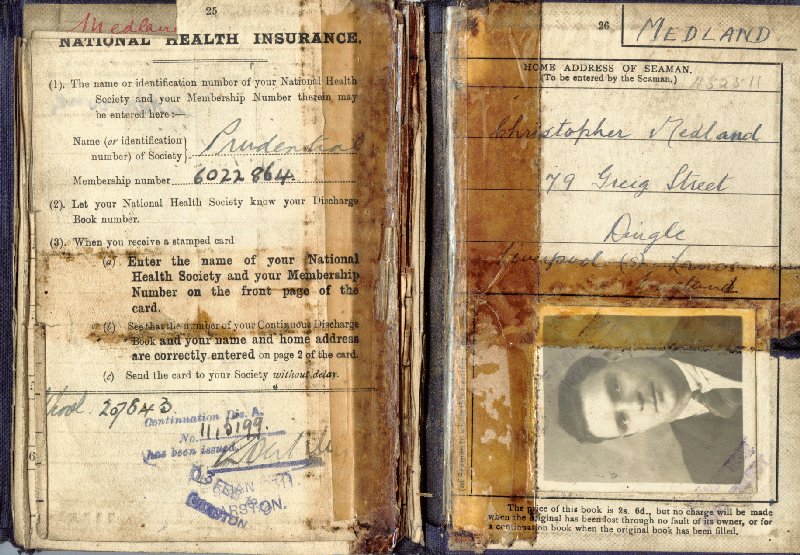 25
Medland
NATIONAL HEALTH INSURANCE.
(1). The name or identification number of your National Health
Society and your Membership Number therein may
be entered here:—
Name (or identification
number) of Society}
Prudential
Membership number 6022864
(2). Let your National Health Society know your Discharge
Book number.
(3). When you receive a stamped card
(a) Enter the name of your National
Health Society and your Membership
Number on the front page of the
card.
(b) See that the number of your Continuous Discharge
Book and your name and home address
are correctly entered on page 2 of the card.
(c) Send the card to your Society without delay.
207843
Continuation Dis. A.
No.
has been issued
26
MEDLAND
HOME ADDRESS OF SEAMAN.
(To be entered by the Seaman.)
Christopher Medland
79 Greig Street
Dingle
Liverpool (8)
The price of this book is 2s. 6d., but no charge will be made
when the original has been lost through no fault of its owner, or for
a continuation book when the original book has been filled.